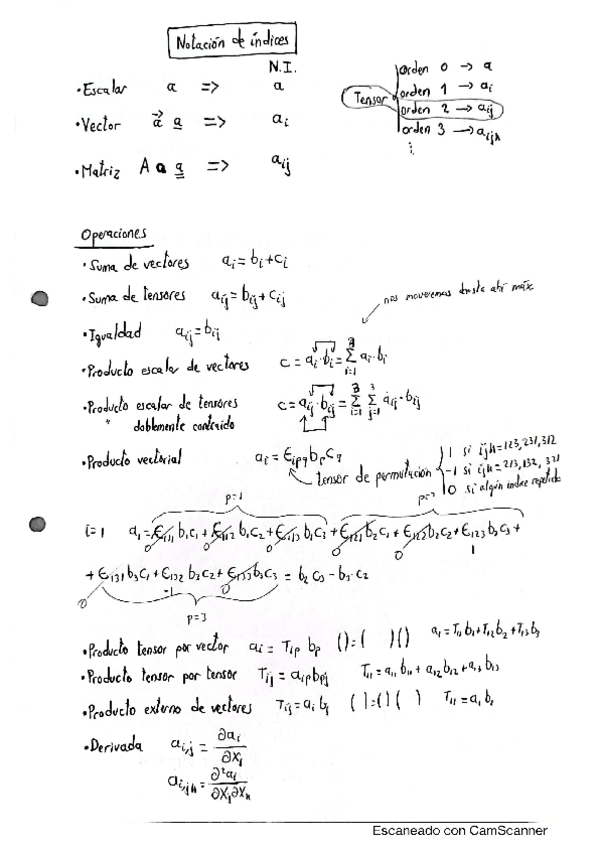 Notación de índices
N.I.
• Escalar a => a
• Vector a⃗ a => aᵢ
• Matriz A a => aᵢⱼ
Tensor
orden 0 → a
orden 1 → aᵢ
orden 2 → aᵢⱼ
orden 3 → aᵢⱼₖ
⋮
Operaciones
• Suma de vectores aᵢ = bᵢ + cᵢ
• Suma de tensores aᵢⱼ = bᵢⱼ + cᵢⱼ
nos moveremos hasta ahí máx
• Igualdad aᵢⱼ = bᵢⱼ
• Producto escalar de vectores c = aᵢ·bᵢ = Σ³ᵢ₌₁ aᵢ·bᵢ
• Producto escalar de tensores c = aᵢⱼ·bᵢⱼ = Σ³ᵢ₌₁ Σ³ⱼ₌₁ aᵢⱼ·bᵢⱼ
" doblemente contraido
• Producto vectorial aᵢ = ϵipq bp cq
tensor de permutación
1 si ijk = 123, 231, 312
-1 si ijk = 213, 132, 321
0 si algún índice repetido
p=1 p=2
i=1 a₁ = ϵ₁₁₁ b₁c₁ + ϵ₁₁₂ b₁c₂ + ϵ₁₁₃ b₁c₃ + ϵ₁₂₁ b₂c₁ + ϵ₁₂₂ b₂c₂ + ϵ₁₂₃ b₂c₃ +
0 0 0 0 0 1
+ ϵ₁₃₁ b₃c₁ + ϵ₁₃₂ b₂c₂ + ϵ₁₃₃ b₃c₃ = b₂c₃ - b₃·c₂
0 -1 0
p=3
• Producto tensor por vector aᵢ = Tip bp ( ) = ( ) ( ) a₁ = T₁₁b₁ + T₁₂b₂ + T₁₃b₃
• Producto tensor por tensor Tᵢⱼ = aip bpj T₁₁ = a₁₁b₁₁ + a₁₂b₁₂ + a₁₃b₁₃
• Producto externo de vectores Tᵢⱼ = aᵢ bⱼ ( ) = ( ) ( ) T₁₁ = a₁b₁
• Derivada aᵢ,ⱼ = ∂aᵢ/∂xⱼ
aᵢ,ⱼₖ = ∂²aᵢ/∂xⱼ∂xₖ
Escaneado con CamScanner